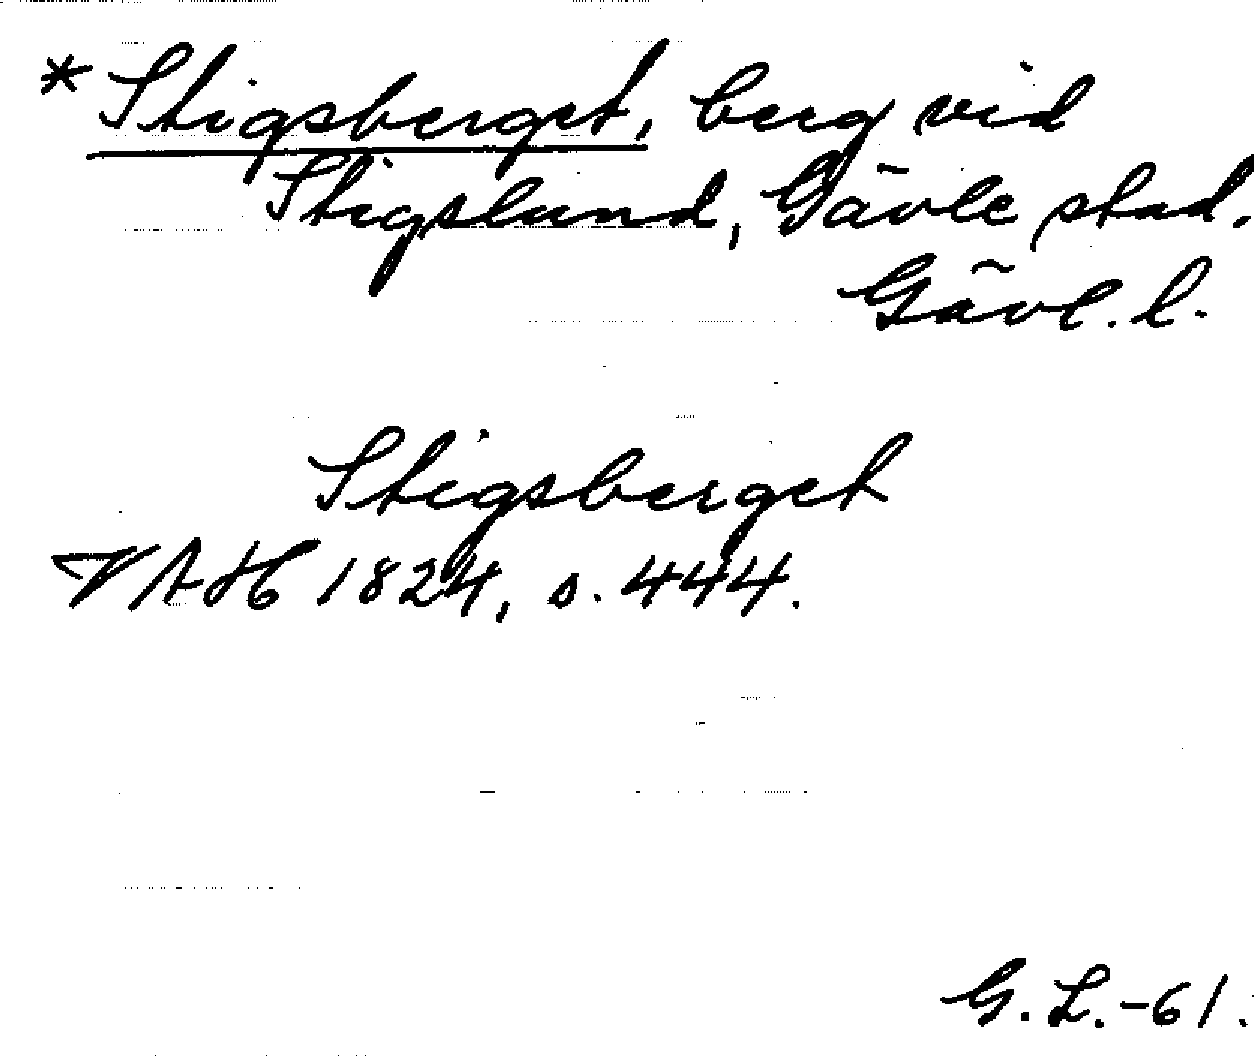 *Stigsberget, berg vid
Stigslund, Gävle stad.
Gävl. l.
Stigsberget
VAH 1824, s. 444.
G. L. -61.